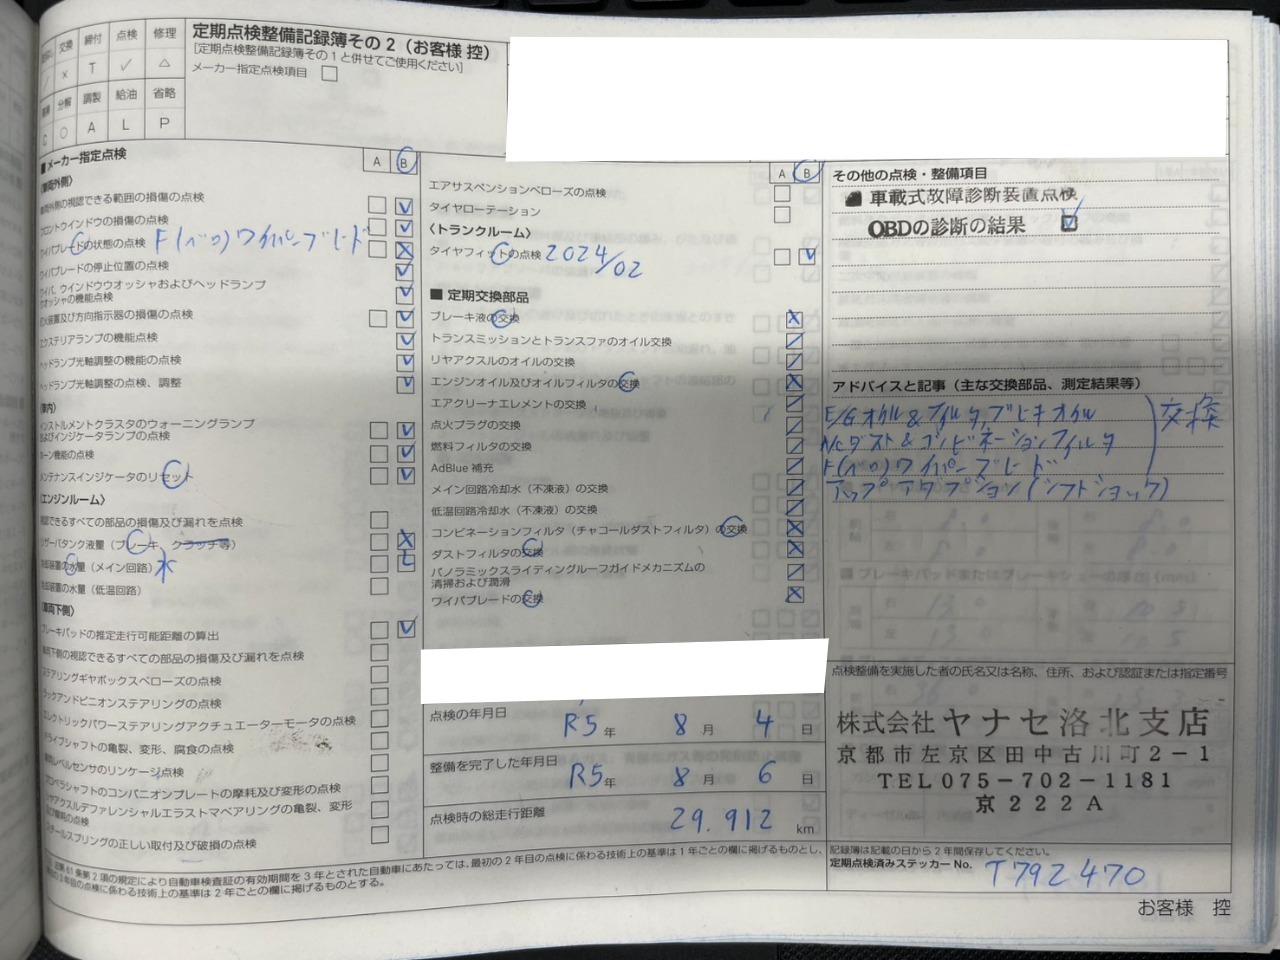 交換 締付 点検 修理
× T ✓ △
分解 調製 給油 省略
C ○ A L P
定期点検整備記録簿その2（お客様 控）
［定期点検整備記録簿その1と併せてご使用ください］
メーカー指定点検項目
■メーカー指定点検
A B
〈車両外側〉
車両外側の視認できる範囲の損傷の点検
フロントウインドウの損傷の点検
ワイパブレードの状態の点検 F(ベロ)ワイパーブレード
ワイパブレードの停止位置の点検
ワイパ、ウインドウウオッシャおよびヘッドランプ
ウオッシャの機能点検
灯火装置及び方向指示器の損傷の点検
エクステリアランプの機能点検
ヘッドランプ光軸調整の機能の点検
ヘッドランプ光軸調整の点検、調整
〈車内〉
インストルメントクラスタのウォーニングランプ
およびインジケータランプの点検
ホーン機能の点検
メンテナンスインジケータのリセット
〈エンジンルーム〉
視認できるすべての部品の損傷及び漏れを点検
リザーバタンク液量（ブレーキ、クラッチ等）
冷却装置の水量（メイン回路） 水
冷却装置の水量（低温回路）
〈車両下側〉
ブレーキパッドの推定走行可能距離の算出
車両下側の視認できるすべての部品の損傷及び漏れを点検
ステアリングギヤボックスベローズの点検
ラックアンドピニオンステアリングの点検
エレクトリックパワーステアリングアクチュエーターモータの点検
ドライブシャフトの亀裂、変形、腐食の点検
車両レベルセンサのリンケージ点検
プロペラシャフトのコンパニオンプレートの摩耗及び変形の点検
リヤアクスルデファレンシャルエラストマベアリングの亀裂、変形
及び腐食の点検
スチールスプリングの正しい取付及び破損の点検
A B
エアサスペンションベローズの点検
タイヤローテーション
〈トランクルーム〉
タイヤフィットの点検 2024/02
■ 定期交換部品
ブレーキ液の交換
トランスミッションとトランスファのオイル交換
リヤアクスルのオイルの交換
エンジンオイル及びオイルフィルタの交換
エアクリーナエレメントの交換
点火プラグの交換
燃料フィルタの交換
AdBlue 補充
メイン回路冷却水（不凍液）の交換
低温回路冷却水（不凍液）の交換
コンビネーションフィルタ（チャコールダストフィルタ）の交換
ダストフィルタの交換
パノラミックスライディングルーフガイドメカニズムの
清掃および潤滑
ワイパブレードの交換
点検の年月日 R5年 8月 4日
整備を完了した年月日 R5年 8月 6日
点検時の総走行距離 29.912 km
その他の点検・整備項目
■ 車載式故障診断装置点検
OBDの診断の結果 ☑
アドバイスと記事（主な交換部品、測定結果等）
E/Gオイル&フィルタ,ブレーキオイル
A/Cダスト&コンビネーションフィルタ
F(ベロ)ワイパーブレード
交換
アップアダプション(シフトショック)
点検整備を実施した者の氏名又は名称、住所、および認証または指定番号
株式会社ヤナセ洛北支店
京都市左京区田中古川町2－1
TEL075－702－1181
京222A
記録簿は記載の日から2年間保存してください。
定期点検済みステッカー No. T792470
第2項の規定により自動車検査証の有効期間を3年とされた自動車にあたっては、最初の2年目の点検に係わる技術上の基準は1年ごとの欄に掲げるものとし、
年目の点検に係わる技術上の基準は2年ごとの欄に掲げるものとする。
お客様 控